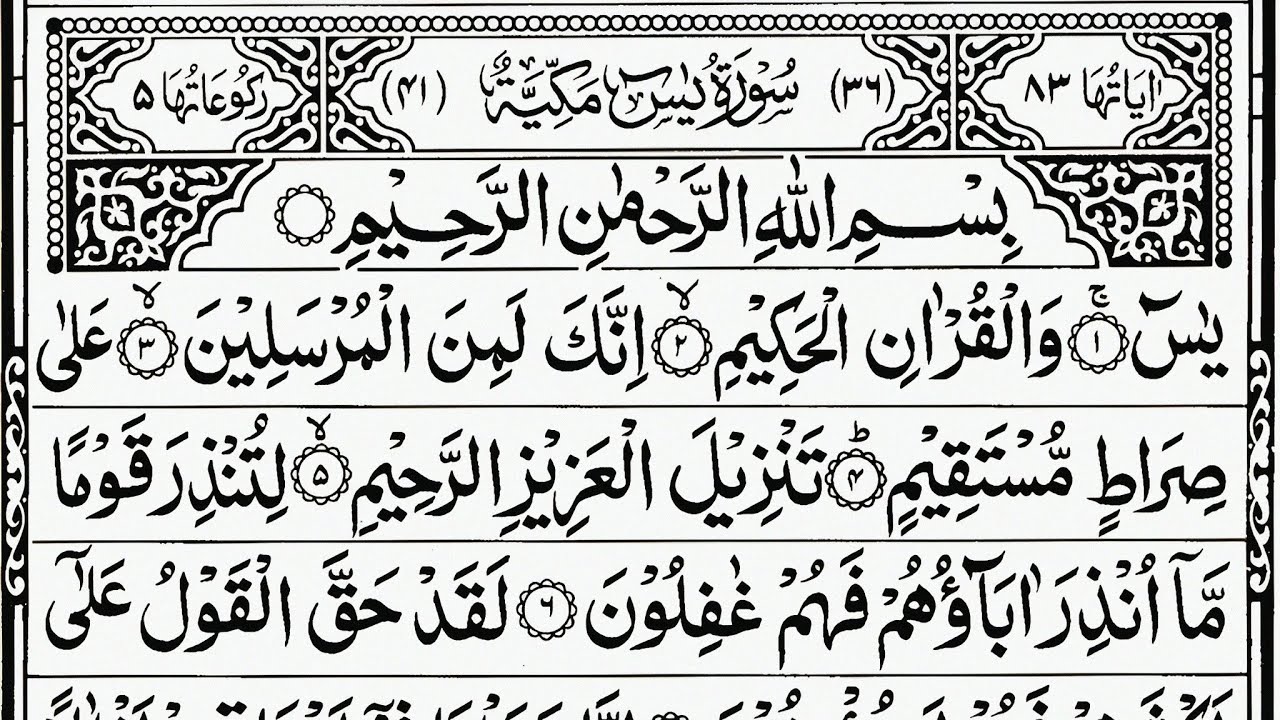 اٰيَاتُهَا ٨٣ (٣٦) سُوْرَةُ يٰسٓ مَكِّيَّةٌ (٤١) رُكُوْعَاتُهَا ٥
بِسْمِ اللّٰهِ الرَّحْمٰنِ الرَّحِيْمِ
يٰسٓ ۚ‏﴿١﴾ وَالْقُرْاٰنِ الْحَكِيْمِ ۙ‏﴿٢﴾ اِنَّكَ لَمِنَ الْمُرْسَلِيْنَ ۙ‏﴿٣﴾ عَلٰى
صِرَاطٍ مُّسْتَقِيْمٍ ؕ‏﴿۴﴾ تَنْزِيْلَ الْعَزِيْزِ الرَّحِيْمِ ۙ‏﴿۵﴾ لِتُنْذِرَ قَوْمًا
مَّاۤ اُنْذِرَ اٰبَآؤُهُمْ فَهُمْ غٰفِلُوْنَ ﴿۶﴾ لَقَدْ حَقَّ الْقَوْلُ عَلٰٓى